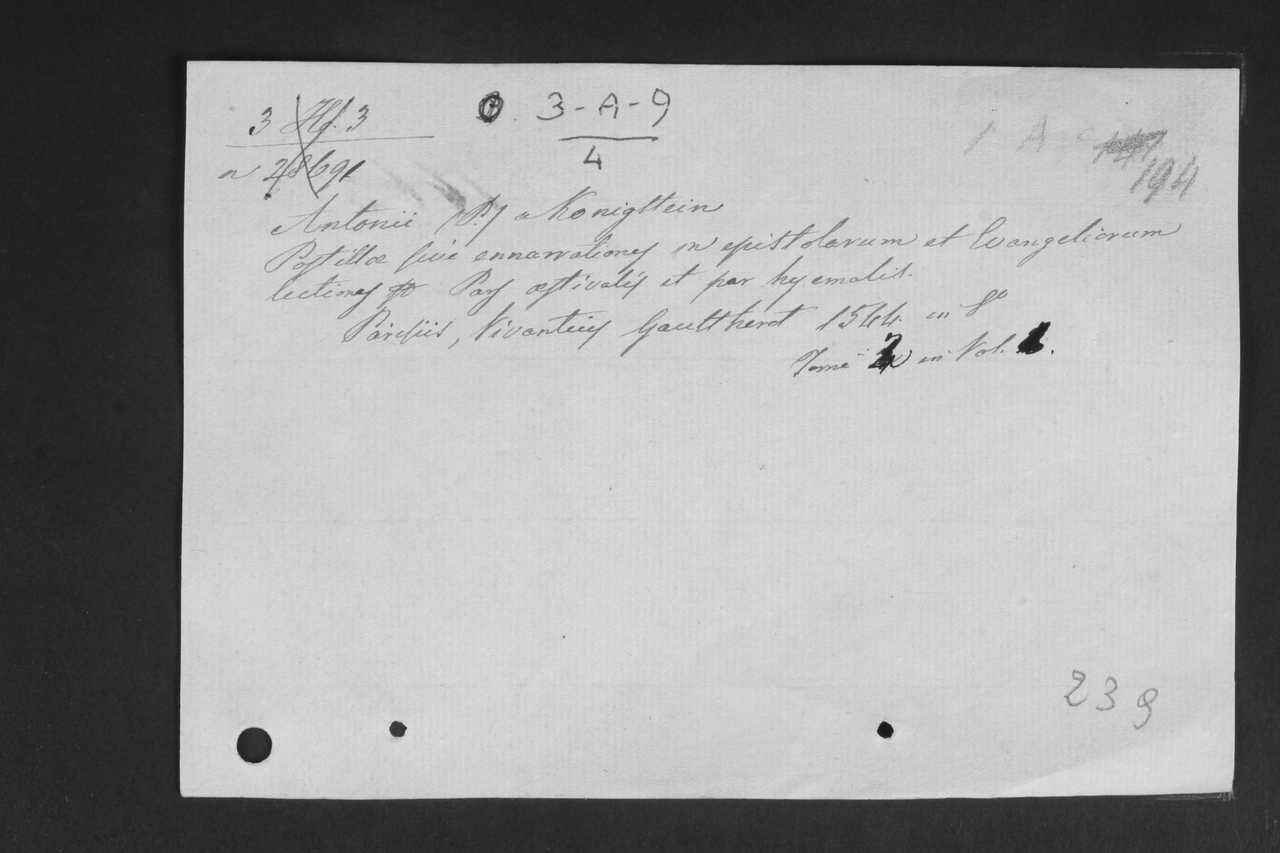 3 Hf. 3
n 28691
3-A-9
4
1 A
194
Antonii (P.) a Konigstein
Postillæ sive ennarrationes in epistolarum et Evangeliorum
lectiones Pars æstivalis et par hyemalis.
Parisiis, Vivantius Gaultherot 1544. in 8º
Tome 2 in Vol.
239